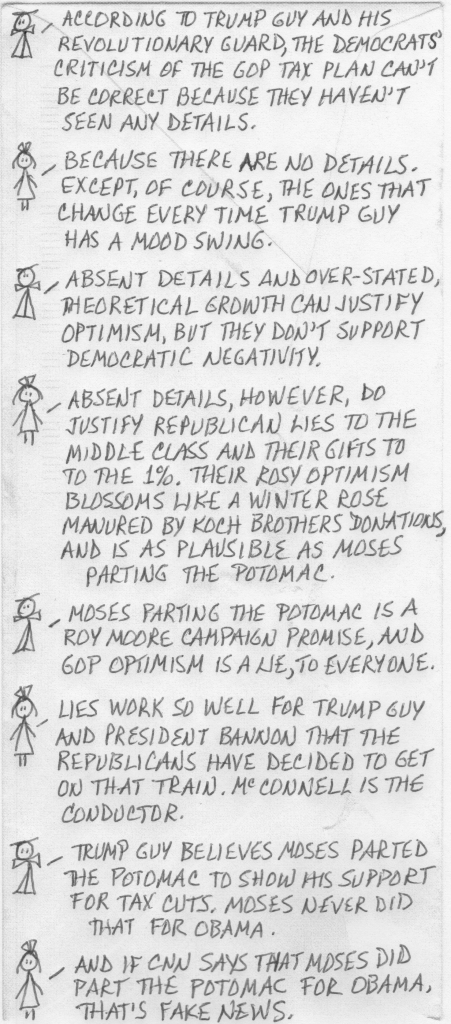 ACCORDING TO TRUMP GUY AND HIS
REVOLUTIONARY GUARD, THE DEMOCRATS'
CRITICISM OF THE GOP TAX PLAN CAN'T
BE CORRECT BECAUSE THEY HAVEN'T
SEEN ANY DETAILS.
BECAUSE THERE ARE NO DETAILS.
EXCEPT, OF COURSE, THE ONES THAT
CHANGE EVERY TIME TRUMP GUY
HAS A MOOD SWING.
ABSENT DETAILS AND OVER-STATED,
THEORETICAL GROWTH CAN JUSTIFY
OPTIMISM, BUT THEY DON'T SUPPORT
DEMOCRATIC NEGATIVITY.
ABSENT DETAILS, HOWEVER, DO
JUSTIFY REPUBLICAN LIES TO THE
MIDDLE CLASS AND THEIR GIFTS TO
TO THE 1%. THEIR ROSY OPTIMISM
BLOSSOMS LIKE A WINTER ROSE
MANURED BY KOCH BROTHERS DONATIONS,
AND IS AS PLAUSIBLE AS MOSES
PARTING THE POTOMAC.
MOSES PARTING THE POTOMAC IS A
ROY MOORE CAMPAIGN PROMISE, AND
GOP OPTIMISM IS A LIE, TO EVERYONE.
LIES WORK SO WELL FOR TRUMP GUY
AND PRESIDENT BANNON THAT THE
REPUBLICANS HAVE DECIDED TO GET
ON THAT TRAIN. McCONNELL IS THE
CONDUCTOR.
TRUMP GUY BELIEVES MOSES PARTED
THE POTOMAC TO SHOW HIS SUPPORT
FOR TAX CUTS. MOSES NEVER DID
THAT FOR OBAMA.
AND IF CNN SAYS THAT MOSES DID
PART THE POTOMAC FOR OBAMA,
THAT'S FAKE NEWS.